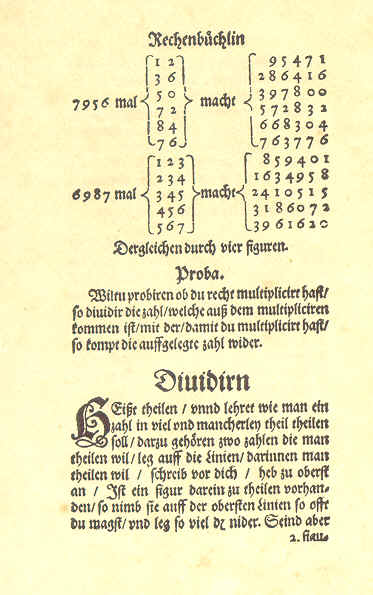 Rechenbüchlin
12 95471
36 286416
50 397800
7956 mal macht
72 572832
84 668304
76 763776
123 859401
234 1634958
6987 mal 345 macht 2410515
456 3186072
567 3961620
Dergleichen durch vier figuren.
Proba.
Wiltu probiren ob du recht multiplicirt hast/
so dividir die zahl/welche auß dem multipliciren
kommen ist/mit der/damit du multiplicirt hast/
so kompt die auffgelegte zahl wider.
Diuidirn
HEißt theilen / vnnd lehret wie man ein
zahl in viel vnd mancherley theil theilen
soll/ darzu gehören zwo zahlen die man
theilen wil/ leg auff die Linien/ darinnen man
theilen wil / schreib vor dich / heb zu oberst
an / Ist ein figur darein zu theilen vorhan-
den/ so nimb sie auff der obersten Linien so offt
du magst/ vnd leg so viel dz nider. Seind aber
2. figu-